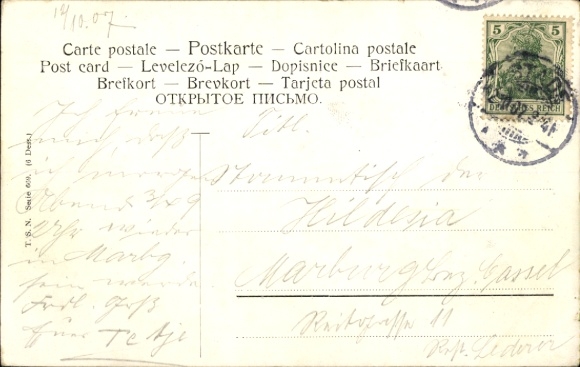 19/10.07.
Carte postale — Postkarte — Cartolina postale
Post card — Levelező-Lap — Dopisnice — Briefkaart
Brefkort — Brevkort — Tarjeta postal
ОТКРЫТОЕ ПИСЬМО.
5 5
DEUTSCHES REICH
T. S. N. Serie 609. (6 Dess.)
Ich freue
mich, daß
ich morgen
Abend 3/4 9
Uhr wieder
in Marbg.
sein werde.
Frdl. Gruß
Euer
Titl.
Stammtisch der
Hildesia
Marburg Bez. Cassel
Reitgasse 11
Rest. Lederer